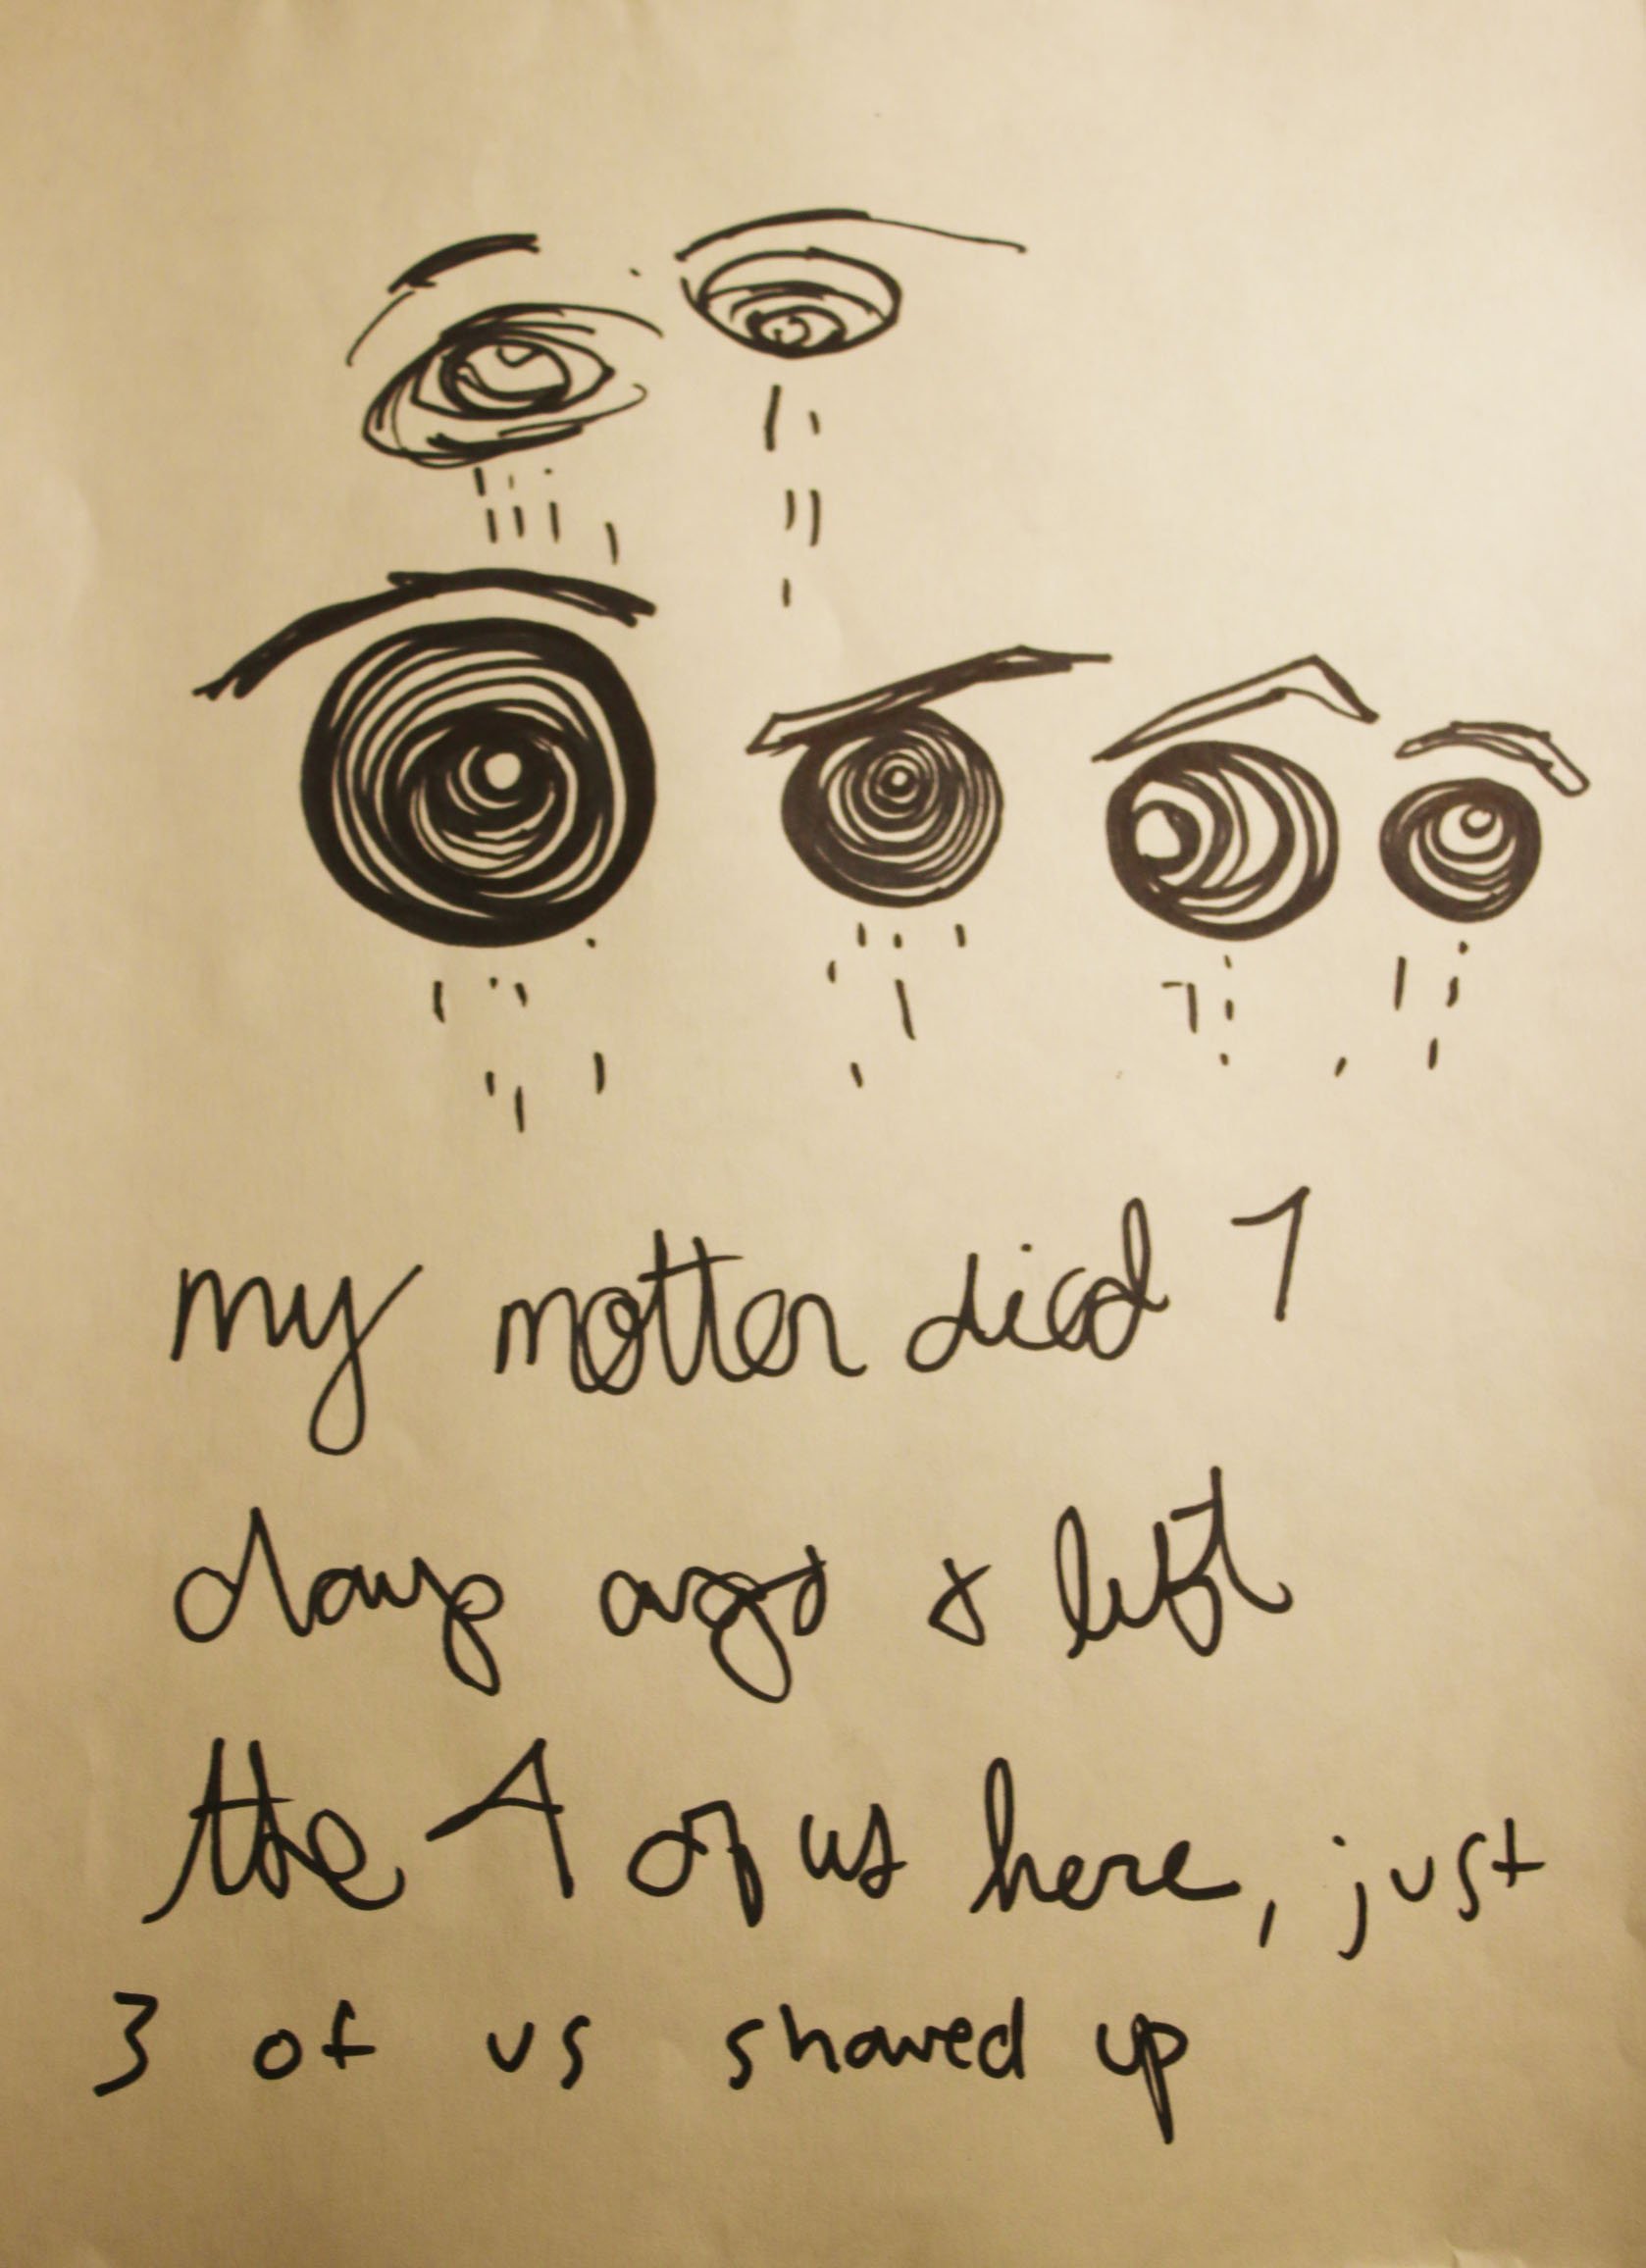 my motter died 7
days ago & left
the 4 of us here, just
3 of us showed up